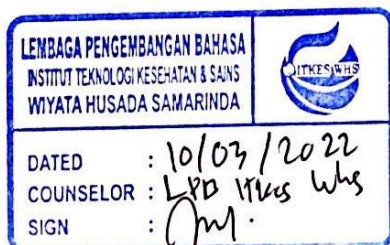 LEMBAGA PENGEMBANGAN BAHASA
INSTITUT TEKNOLOGI KESEHATAN & SAINS
WIYATA HUSADA SAMARINDA
ITKES WHS
DATED : 10/03/2022
COUNSELOR : LPB ITKes Whs
SIGN :